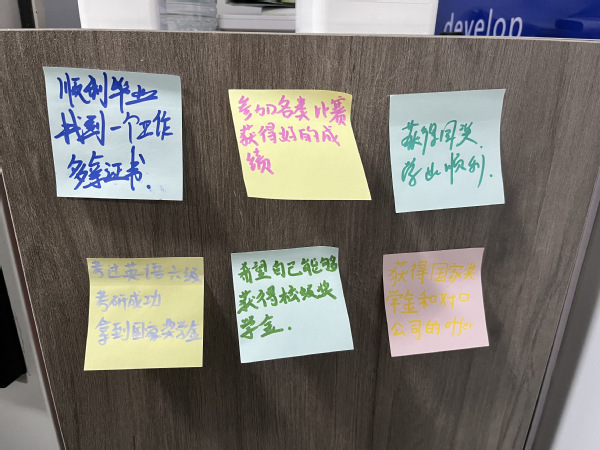 develop
顺利毕业
找到一个工作
多拿证书.
参加各类比赛
获得好的成
绩
获得国奖.
学业顺利.
考过英语六级
考研成功
拿到国家奖学金
希望自己能够
获得校级奖
学金.
获得国家奖
学金和对口
公司的offer